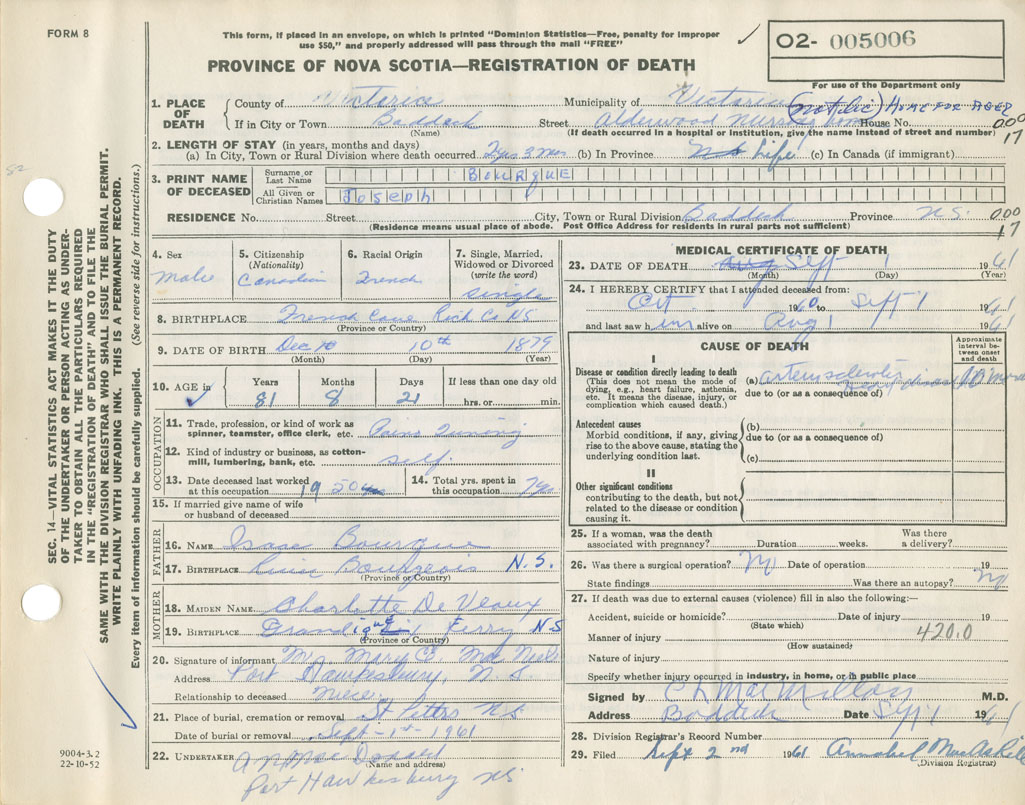 FORM 8
This form, if placed in an envelope, on which is printed "Dominion Statistics—Free, penalty for improper
use $50," and properly addressed will pass through the mail "FREE"
O2- 005006
PROVINCE OF NOVA SCOTIA—REGISTRATION OF DEATH
For use of the Department only
1. PLACE OF DEATH
County of Victoria Municipality of Victoria
HOME FOR AGED
If in City or Town Baddeck Street Alderwood Nursing Home House No.
(Name) (If death occurred in a hospital or institution, give the name instead of street and number)
000
17
2. LENGTH OF STAY (in years, months and days)
(a) In City, Town or Rural Division where death occurred 2 yrs 3 mos (b) In Province Life (c) In Canada (if immigrant)
3. PRINT NAME OF DECEASED
Surname or Last Name BOURQUE
All Given or Christian Names Joseph
RESIDENCE No. Street City, Town or Rural Division Baddeck Province N.S. 000
(Residence means usual place of abode. Post Office Address for residents in rural parts not sufficient) 17
4. Sex
Male
5. Citizenship
(Nationality)
Canadian
6. Racial Origin
French
7. Single, Married, Widowed or Divorced
(write the word)
Single
8. BIRTHPLACE French Cove Rich Co NS
(Province or Country)
9. DATE OF BIRTH Dec 10 10th 1879
(Month) (Day) (Year)
10. AGE in
Years Months Days If less than one day old
81 8 21 hrs. or min.
OCCUPATION
11. Trade, profession, or kind of work as
spinner, teamster, office clerk, etc. Piano Tuning
12. Kind of industry or business, as cotton-
mill, lumbering, bank, etc. self.
13. Date deceased last worked
at this occupation 1950
14. Total yrs. spent in
this occupation
15. If married give name of wife
or husband of deceased
FATHER
16. NAME Isaac Bourque
17. BIRTHPLACE Bourgeois N.S.
(Province or Country)
MOTHER
18. MAIDEN NAME Charlotte De Veaux
19. BIRTHPLACE Grandique Ferry NS
(Province or Country)
20. Signature of informant Mrs Mary C.
Address Port Hawkesbury, N.S.
Relationship to deceased niece.
21. Place of burial, cremation or removal St Peters NS
Date of burial or removal Sept-1st-1961
22. UNDERTAKER
(Name and address)
Port Hawkesbury NS
MEDICAL CERTIFICATE OF DEATH
23. DATE OF DEATH Sept 1 1961
(Month) (Day) (Year)
24. I HEREBY CERTIFY that I attended deceased from:
Oct 1960 to Sept 1 1961
and last saw him alive on Aug 1 1961
CAUSE OF DEATH
Approximate interval between onset and death
I
Disease or condition directly leading to death
(This does not mean the mode of
dying, e.g., heart failure, asthenia,
etc. It means the disease, injury, or
complication which caused death.)
(a) arteriosclerotic heart disease
due to (or as a consequence of)
Antecedent causes
Morbid conditions, if any, giving
rise to the above cause, stating the
underlying condition last.
(b)
due to (or as a consequence of)
(c)
II
Other significant conditions
contributing to the death, but not
related to the disease or condition
causing it.
25. If a woman, was the death
associated with pregnancy? Duration weeks.
Was there
a delivery?
26. Was there a surgical operation? No Date of operation 19
State findings Was there an autopsy? No
27. If death was due to external causes (violence) fill in also the following:—
Accident, suicide or homicide? Date of injury 19
(State which)
Manner of injury 420.0
(How sustained)
Nature of injury
Specify whether injury occurred in industry, in home, or in public place
Signed by C L MacMillan M.D.
Address Baddeck Date Sept 1 1961
28. Division Registrar's Record Number
29. Filed Sept 2nd 1961 Annabel MacAskill
(Division Registrar)
SEC. 14—VITAL STATISTICS ACT MAKES IT THE DUTY
OF THE UNDERTAKER OR PERSON ACTING AS UNDER-
TAKER TO OBTAIN ALL THE PARTICULARS REQUIRED
IN THE "REGISTRATION OF DEATH" AND TO FILE THE
SAME WITH THE DIVISION REGISTRAR WHO SHALL ISSUE THE BURIAL PERMIT.
WRITE PLAINLY WITH UNFADING INK. THIS IS A PERMANENT RECORD.
Every item of information should be carefully supplied. (See reverse side for instructions.)
9004-3.2
22-10-52